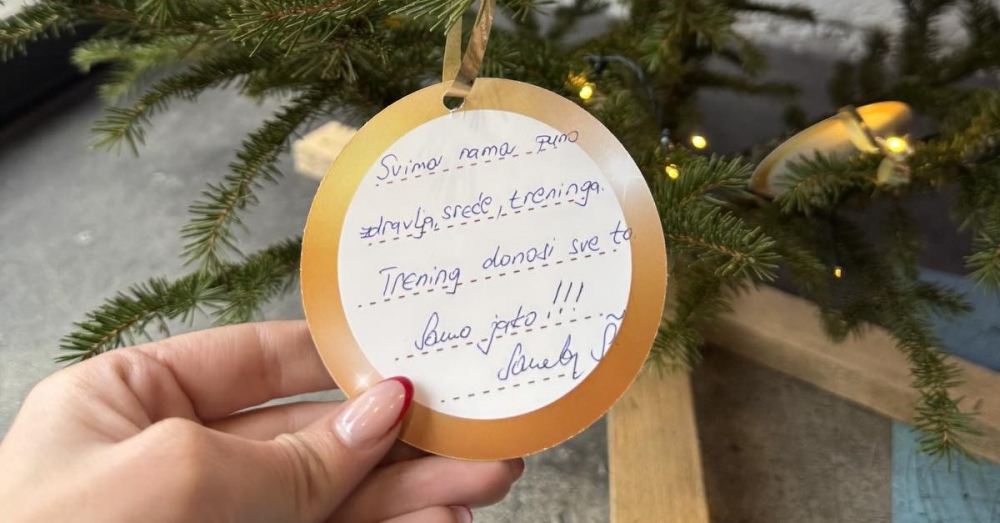 Svima nama puno
zdravlja, sreće, treninga.
Trening donosi sve to
Samo jako!!!